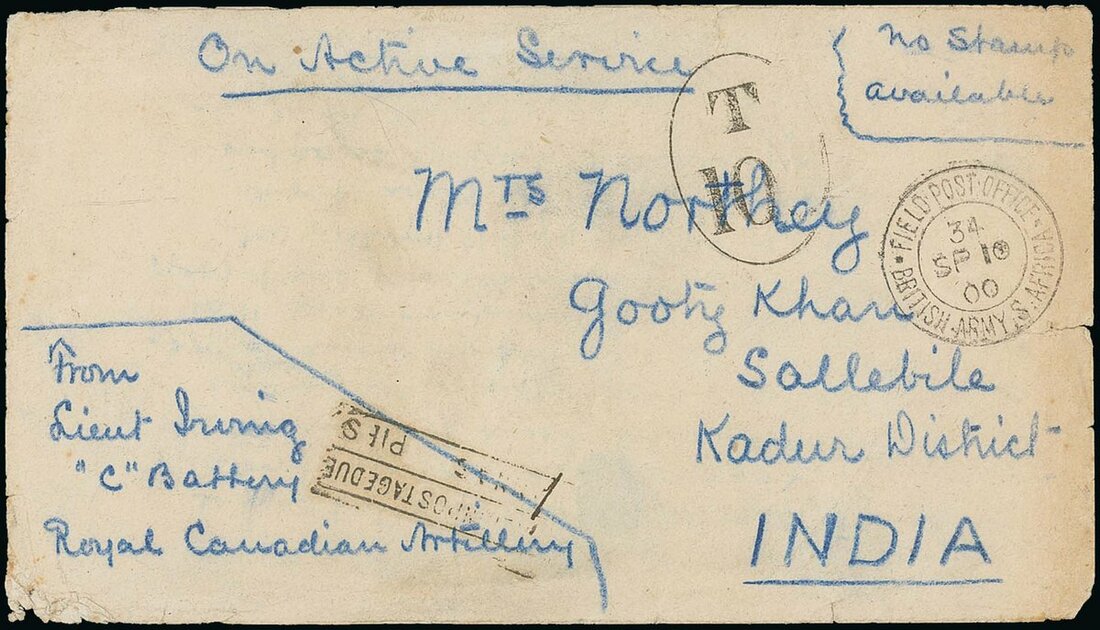 On Active Service
No Stamps
available
T
10
Mrs Northey
Gooty Khan
Sallebile
Kadur District
INDIA
FIELD·POST·OFFICE
34
SP 10
00
BRITISH·ARMY·S.AFRICA
From
Lieut Irving
"C" Battery
Royal Canadian Artillery
POSTAGE DUE